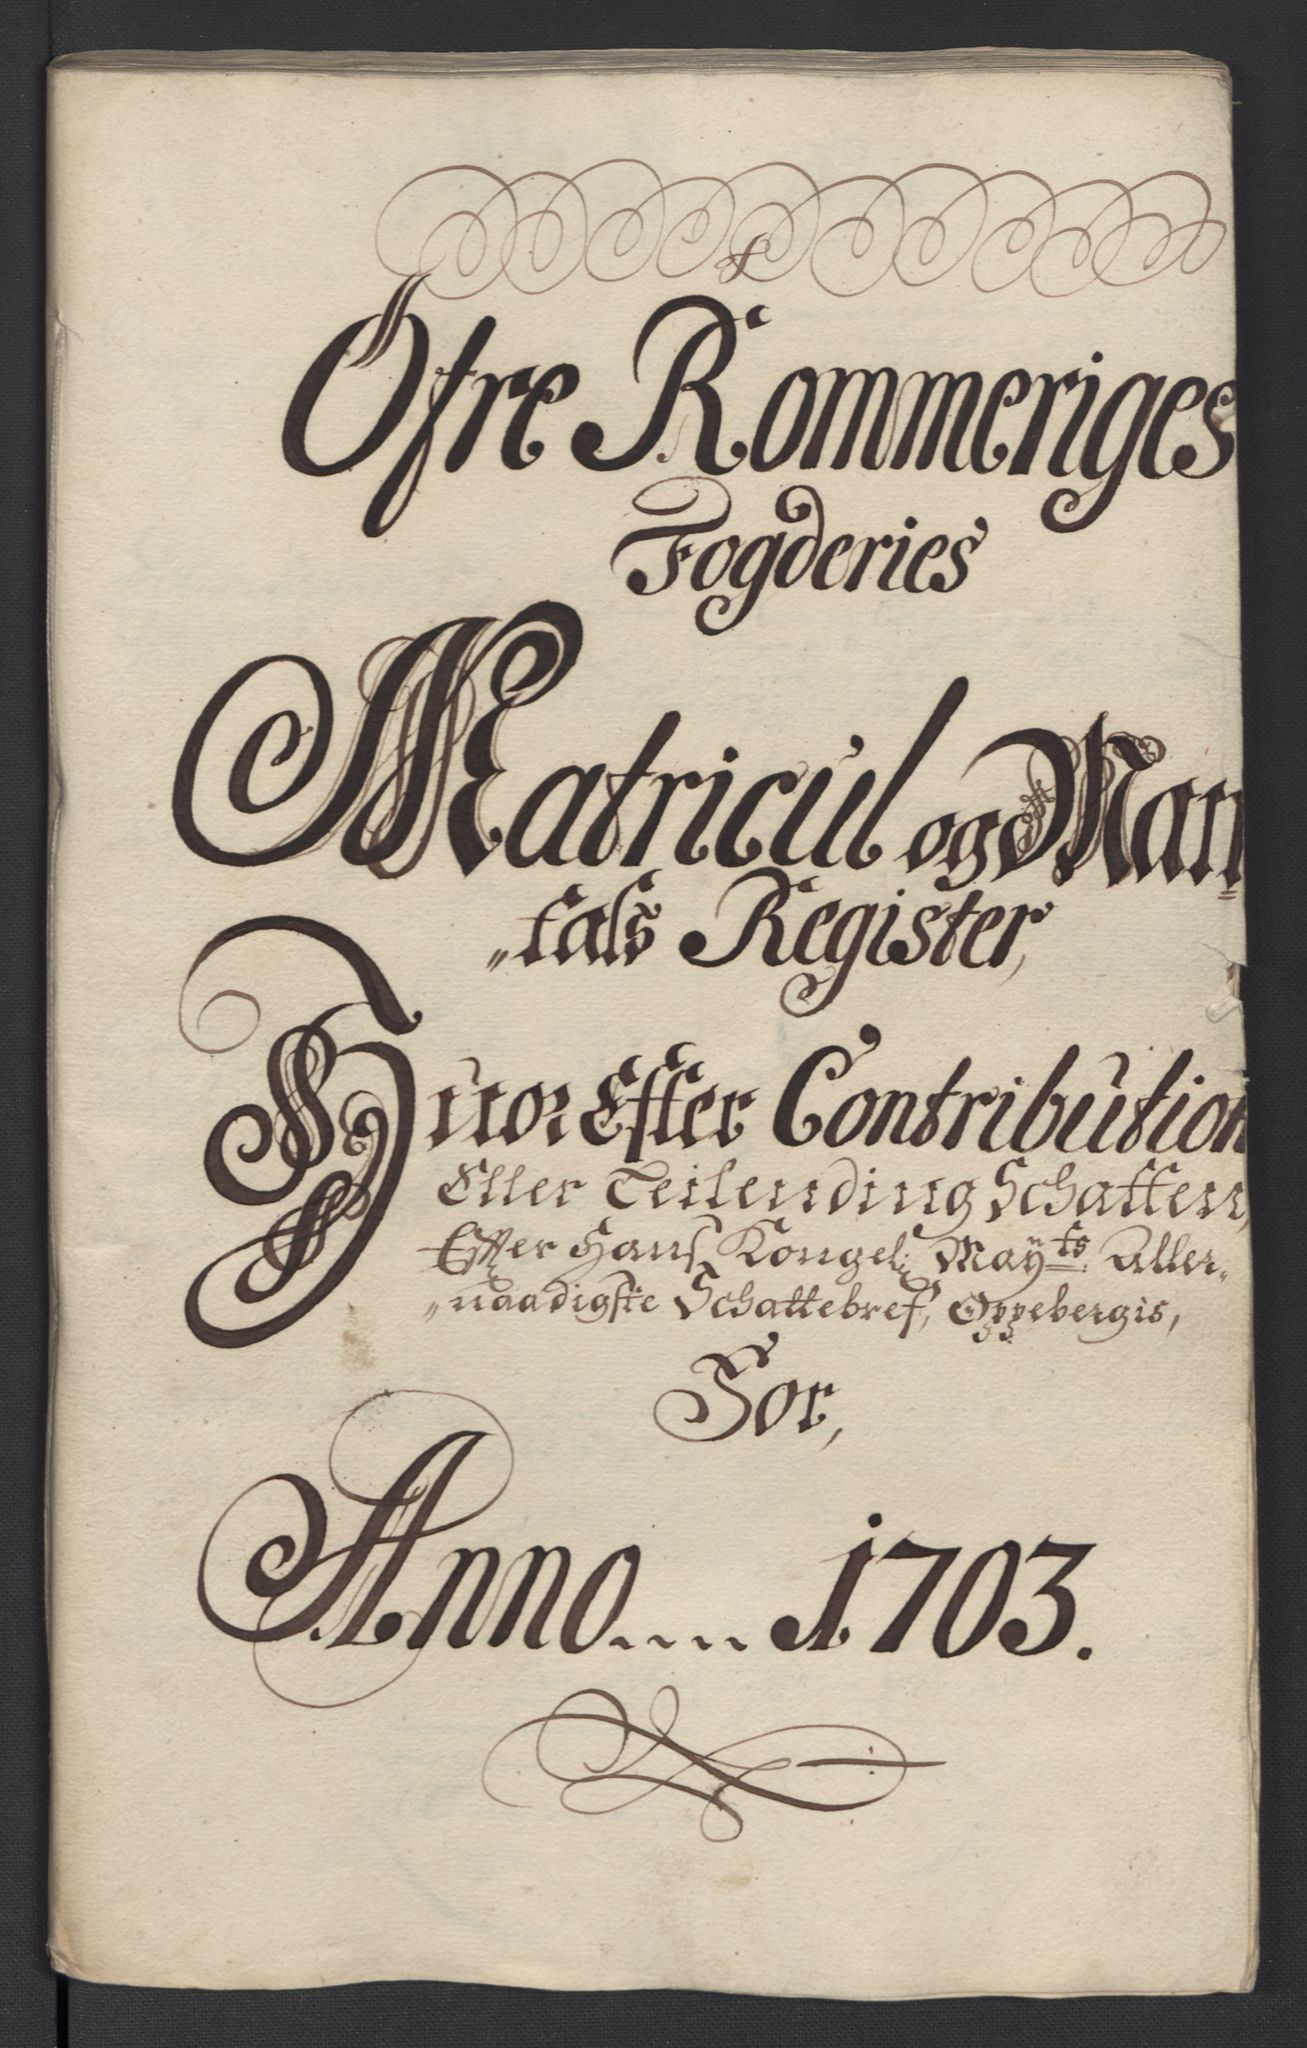 Öfre Rommeriges
Fogderies
Matricul og Man
„tals Register,
Huor Effter Contribution
Eller Teilending Schatten,
Effter Hans Kongel: Mayts. Aller„
„naadigste Schattebref, Oppebergis,
For,
Anno.... 1703.